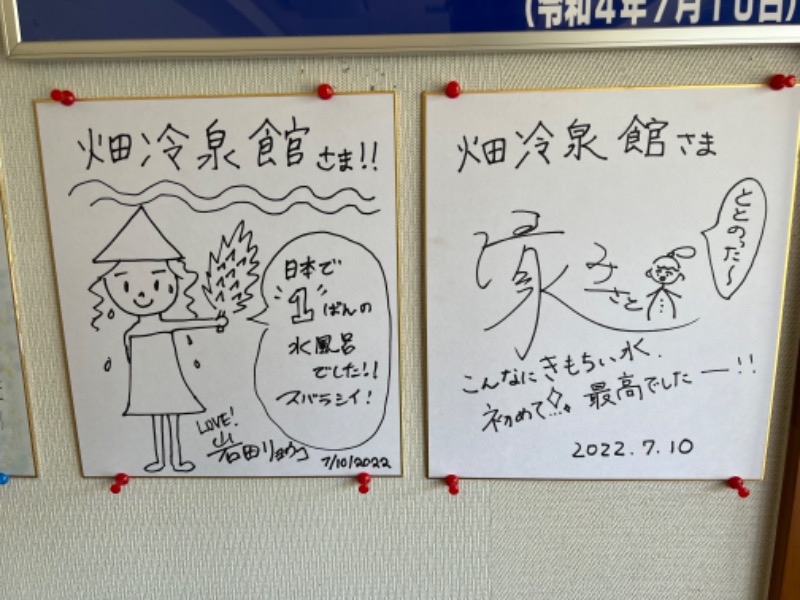 (令和4年7月10日)
畑冷泉館さま!!
日本で
1ばんの
水風呂
でした!!
スバラシイ!
LOVE!
7/10/2022
畑冷泉館さま
ととのった〜
家
みさと
こんなにきもちい水.
初めて!! 最高でしたー!!
2022.7.10